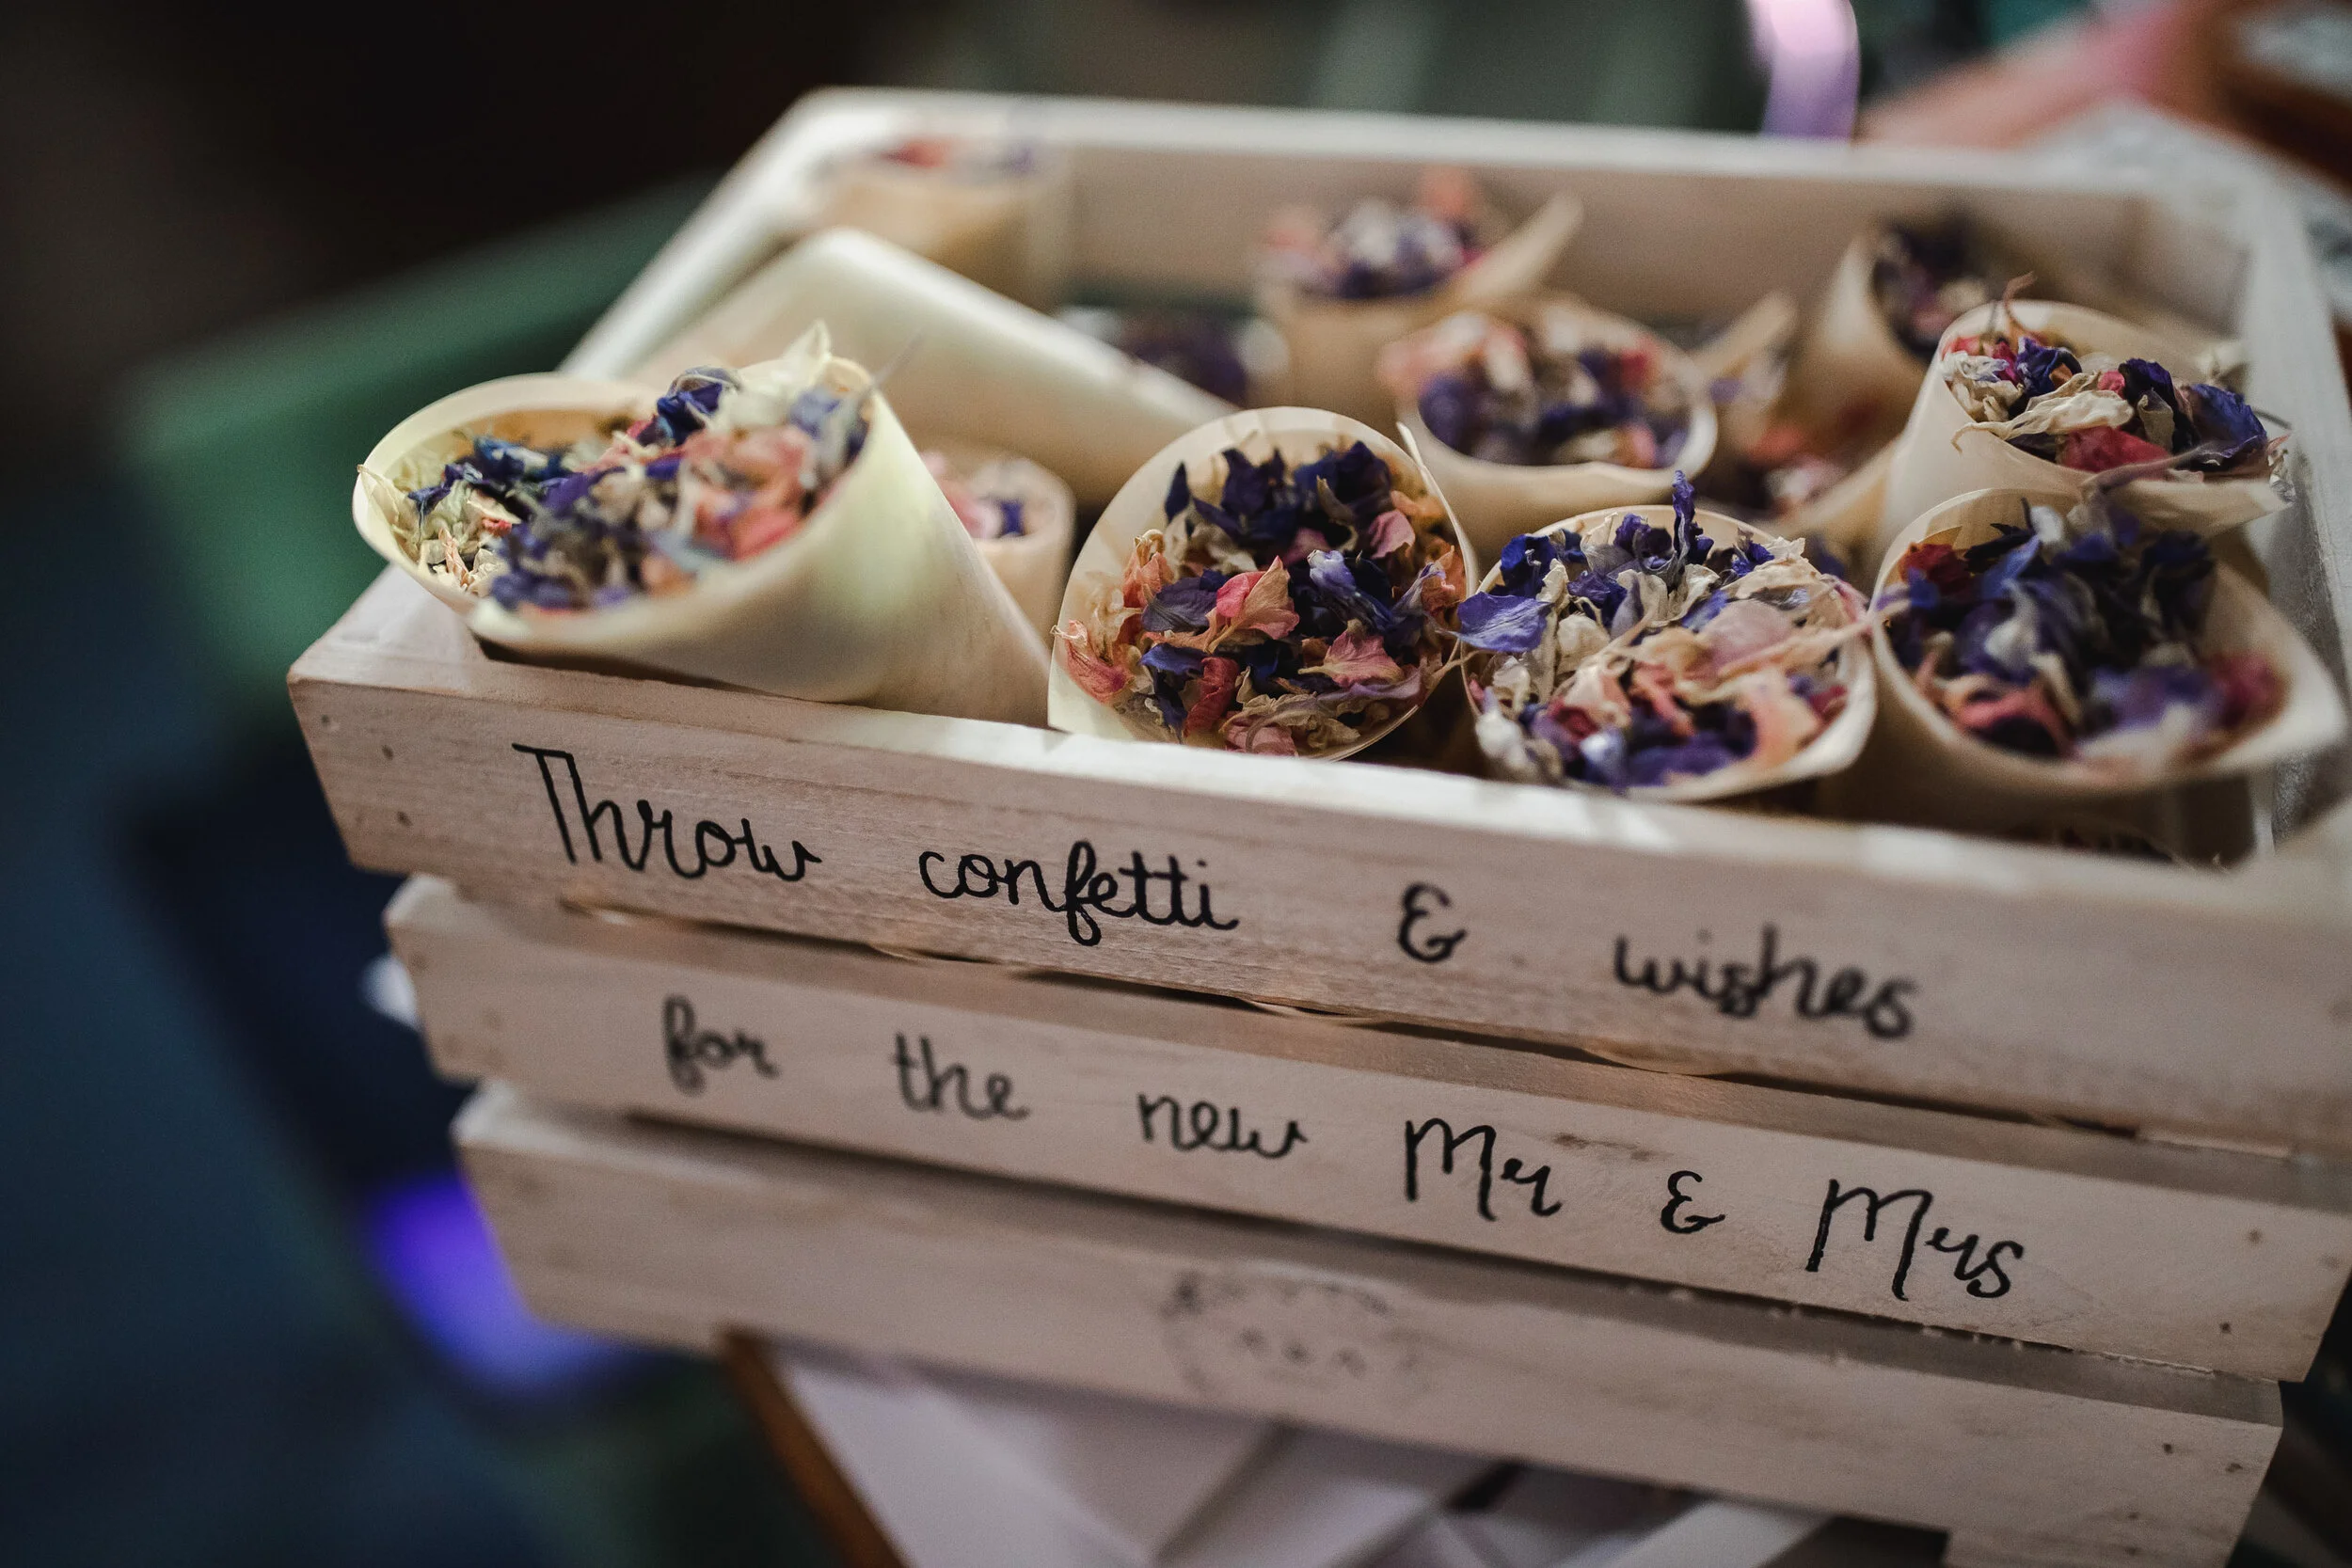 Throw confetti & wishes
for the new Mr & Mrs